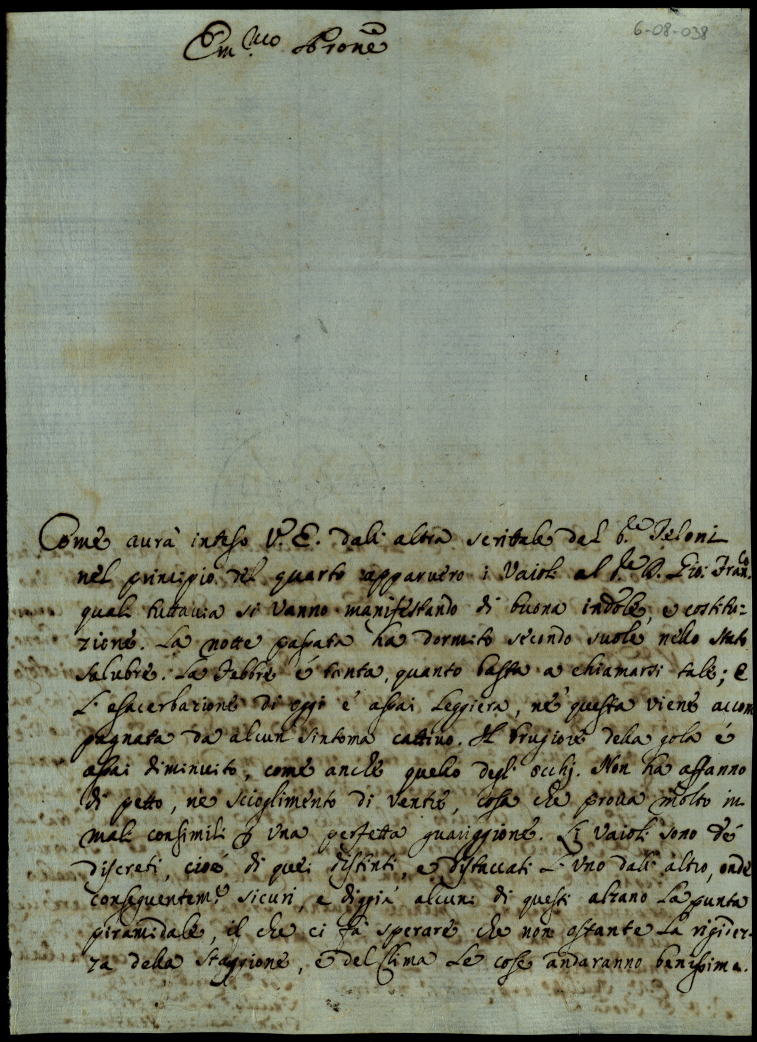 6-08-038
Em.mo Prone
Come aurà inteso V. E. dall altra scrittale del S.re Feloni
nel principio del quarto apparuero i Vaioli al S.re D. Gio: Fran.co
quali tuttauia si vanno manifestando di buona indole, e costitu-
zione. La notte passata ha dormito secondo suole nello stato
salubre. La Febbre è tanta, quanto basta a chiamarsi tale; e
l'esacerbazione di oggi è assai leggiera, nè questa viene accom
pagnata da alcun sintoma cattiuo. Il brugiore della gola è
assai diminuito, come anche quello degl'occhj. Non ha affanno
di petto, nè scioglimento di ventre, cosa che proua molto in
mali consimili p una perfetta guariggione. Li Vaioli sono dè
discreti, cioè di quei distinti, e distaccati l'uno dall'altro, onde
conseguentem.te sicuri, e diggià alcuni di questi alzano la punta
piramidale, il che ci fà sperare che non ostante la rigidez-
za della staggione, e del Clima le cose andaranno benissimo.